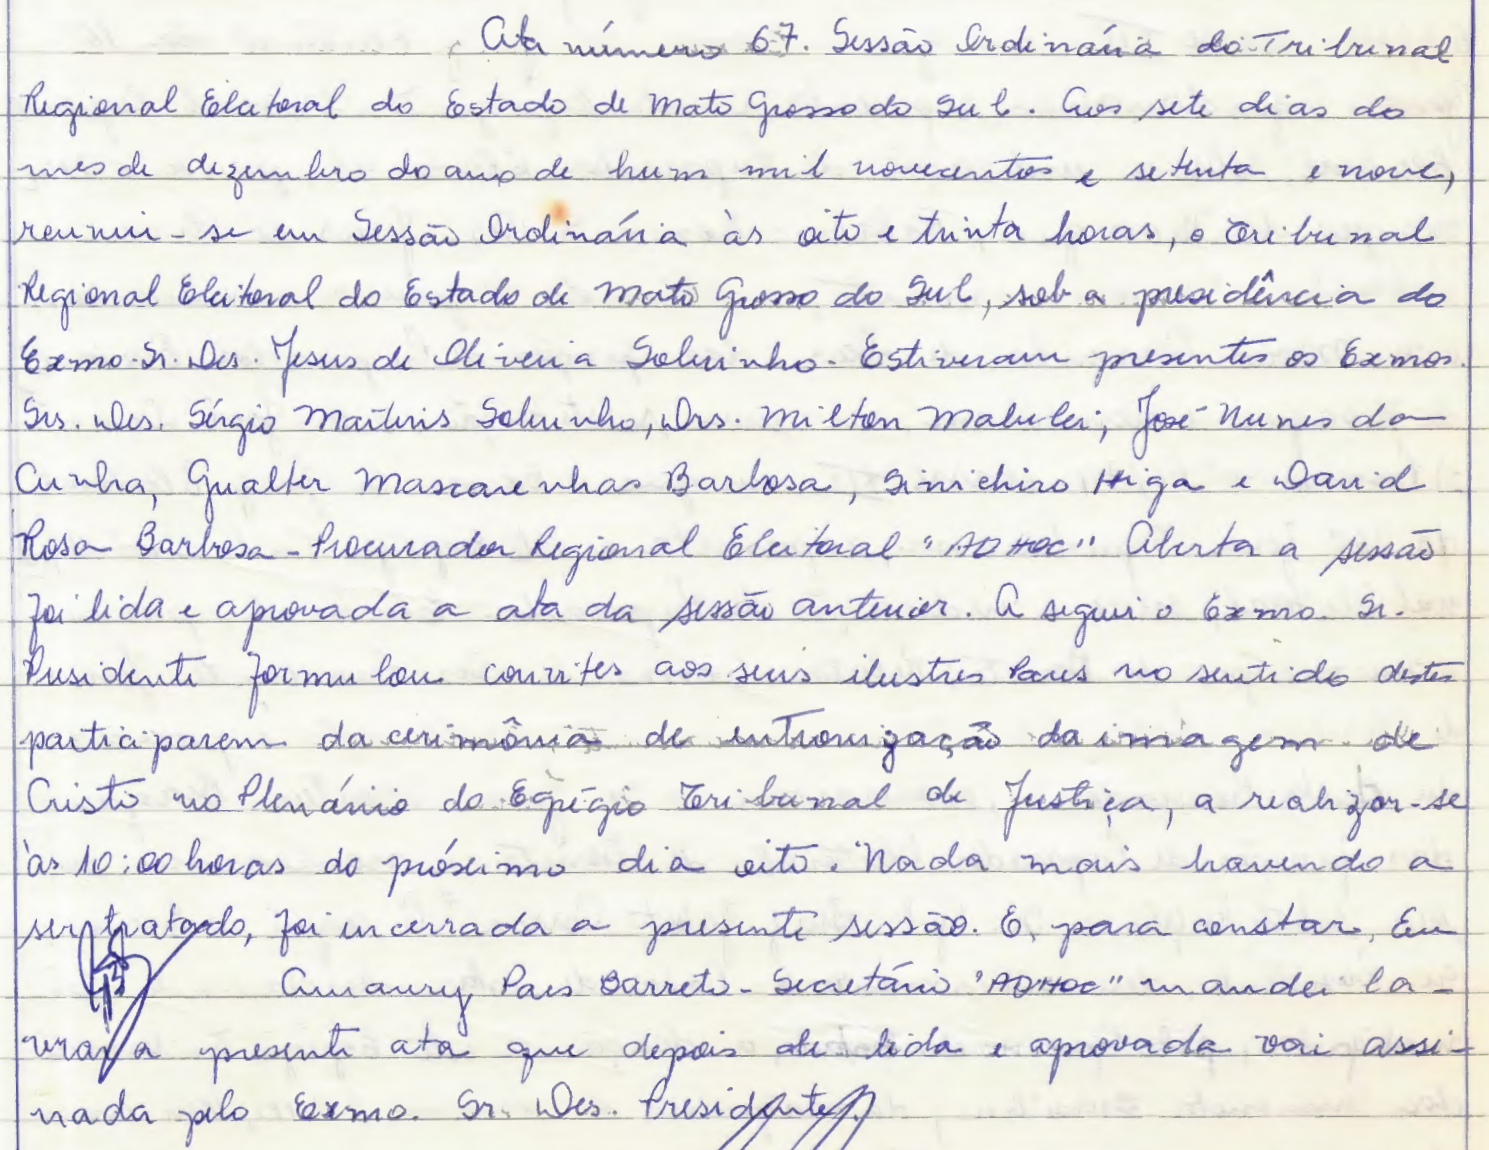 Ata número 67. Sessão Ordinária do Tribunal
Regional Eleitoral do Estado de Mato Grosso do Sul. Aos sete dias do
mes de dezembro do ano de hum mil novecentos e setenta e nove,
reuniu-se em Sessão Ordinária às oito e trinta horas, o Tribunal
Regional Eleitoral do Estado de Mato Grosso do Sul, sob a presidência do
Exmo. Sr. Des. Jesus de Oliveira Sobrinho. Estiveram presentes os Exmos.
Srs. Des. Sérgio Martins Sobrinho, Drs. Milton Malulei; José Nunes da
Cunha, Gualter Mascarenhas Barbosa, Sinichiro Higa e David
Rosa Barbosa - Procurador Regional Eleitoral "AD HOC" Aberta a sessão
foi lida e aprovada a ata da sessão anterior. A seguir o Exmo. Sr.
Presidente formulou convites aos seus ilustres Pares no sentido destes
participarem da cerimônia de entronização da imagem de
Cristo no Plenário do Egrégio Tribunal de Justiça, a realizar-se
às 10:00 horas do próximo dia oito. Nada mais havendo a
ser tratado, foi encerrada a presente sessão. E, para constar, Eu
Amaury Paes Barreto - Secretário "AD HOC" mandei la-
vrar a presente ata que depois de lida e aprovada vai assi-
nada pelo Exmo. Sr. Des. Presidente.